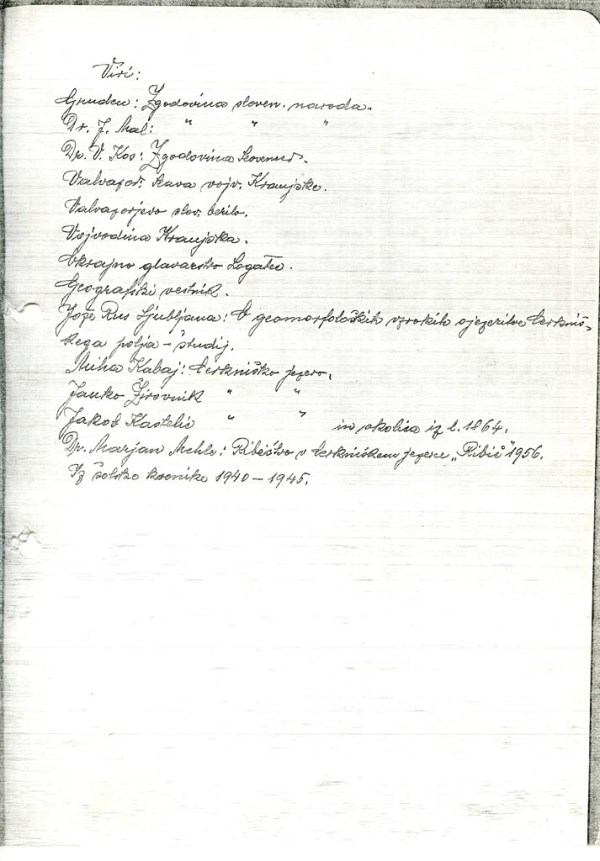 Viri:
Gruden: Zgodovina sloven. naroda.
Dr. J. Mal: " " "
Dr. V. Kos: Zgodovina Slovencev.
Valvazor: Slava vojv. Kranjske.
Valvazorjevo slov. berilo.
Vojvodina Kranjska.
Okrajno glavarstvo Logatec.
Geografski vestnik.
Jože Rus Ljubljana: O geomorfoloških vzrokih ojezeritve Cerkniš-
kega polja - študij.
Miha Kabaj: Cerkniško jezero.
Janko Žirovnik " "
Jakob Kastelic " " in okolica iz l. 1864.
Dr. Marjan Mehle: Ribištvo v Cerkniškem jezeru "Ribič" 1956.
Iz šolske kronike 1940-1945.